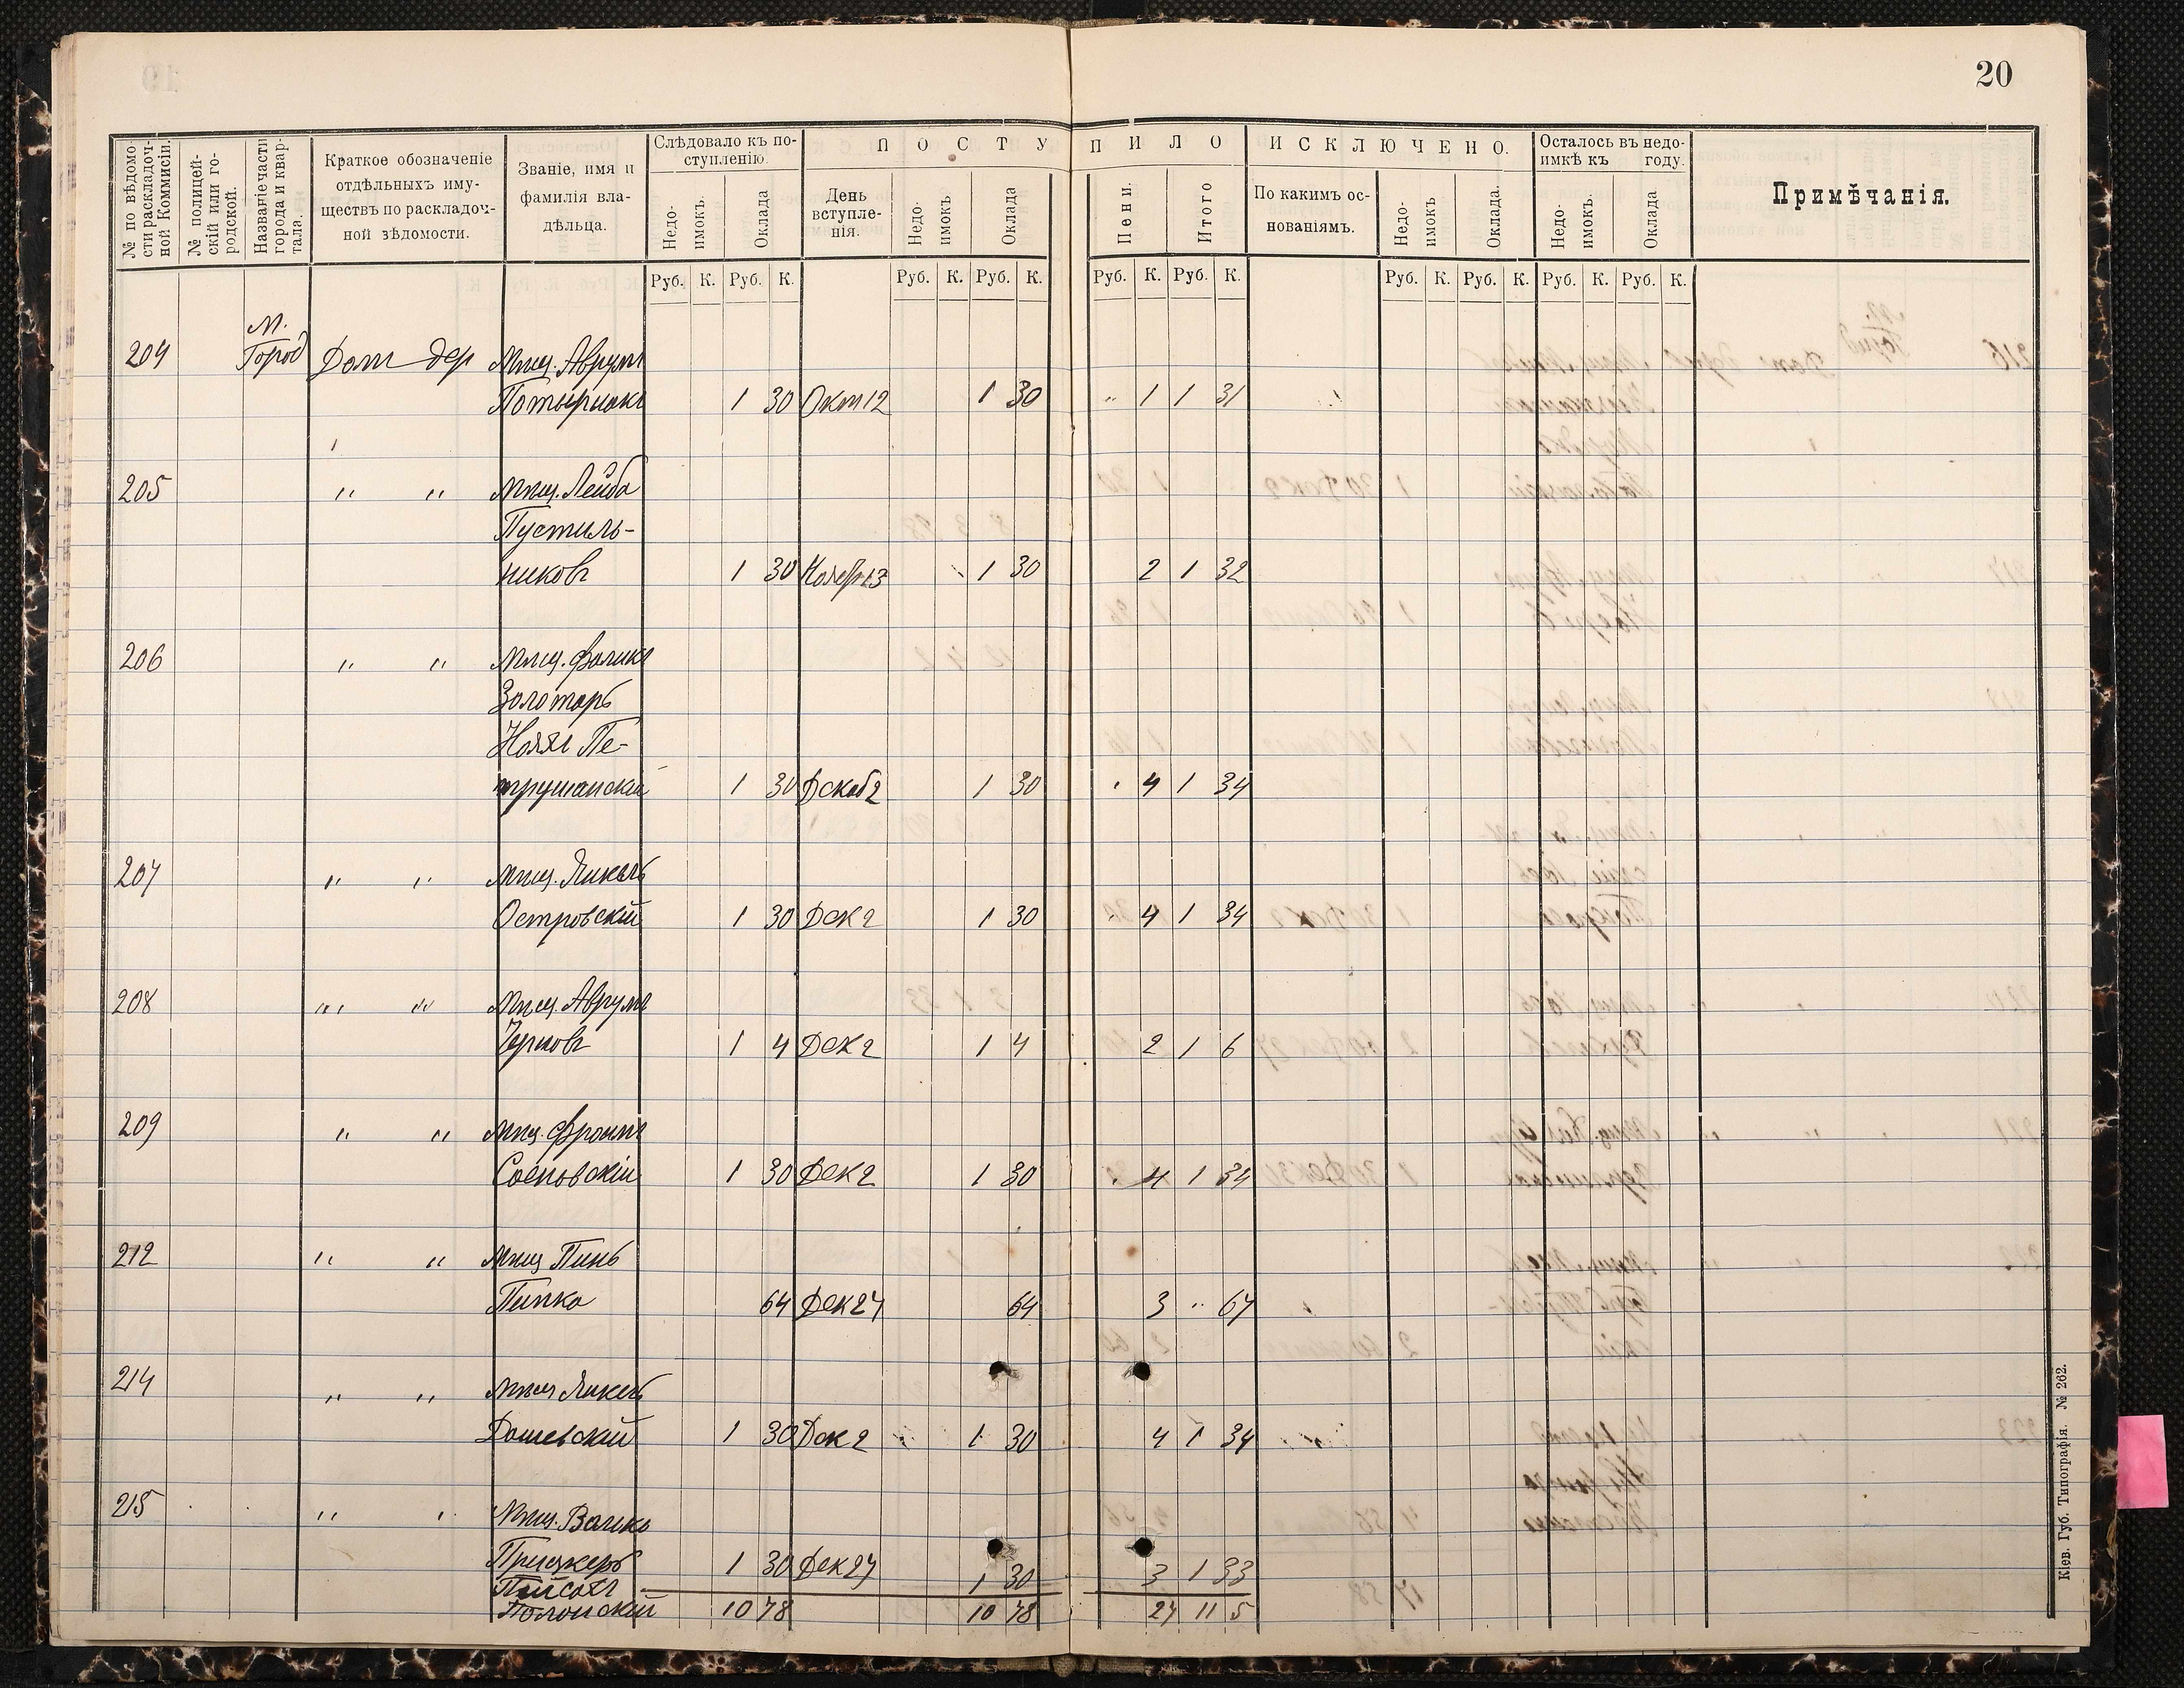 20
№ по вѣдомо-
сти раскладоч-
ной Коммисіи.
№ полицей-
скій или го-
родской.
Названіе части
города и квар-
тала.
Краткое обозначеніе
отдѣльныхъ иму-
ществъ по раскладоч-
ной вѣдомости.
Званіе, имя и
фамилія вла-
дѣльца.
Слѣдовало къ по-
ступленію.
Недо-
имокъ.
Оклада
ПОСТУПИЛО
День
вступле-
нія.
Недо-
имокъ
Оклада
Пени.
Итого
ИСКЛЮЧЕНО.
По какимъ ос-
нованіямъ.
Недо-
имокъ
Оклада.
Осталось въ недо-
имкѣ къ году.
Недо-
имокъ.
Оклада
Примѣчанія.
Руб. К. Руб. К. Руб. К. Руб. К. Руб. К. Руб. К. Руб. К. Руб. К. Руб. К. Руб. К.
М.
204 Город Дом дер Мѣщ. Аврумъ
1 30 Окт 12 1 30 " 1 1 31
205 " " Мѣщ. Лейба
Пустиль-
никовъ 1 30 Нояб 13 1 30 2 1 32
206 " " Мѣщ.
Золотарь
Пе-
трушанскій 1 30 Декаб 2 1 30 4 1 34
207 " " Мѣщ. Янкель
Островскій 1 30 Дек 2 1 30 " 4 1 34
208 " " Мѣщ. Аврумъ
1 4 Дек 2 1 4 2 1 6
209 " " Мѣщ. Фроимъ
Сосновскій 1 30 Дек 2 1 30 4 1 34
212 " " Мѣщ Пинь
Пинко 64 Дек 27 64 3 " 67
214 " " Мѣщ Янкель
Дашевскій 1 30 Дек 2 1 30 4 1 34
215 " " Мѣщ. Волько
Прицкеръ 1 30 Дек 27 1 30 3 1 33
Пейсахъ
Полонскій 10 78 10 78 27 11 5
Кіев. Губ. Типографія. № 262.